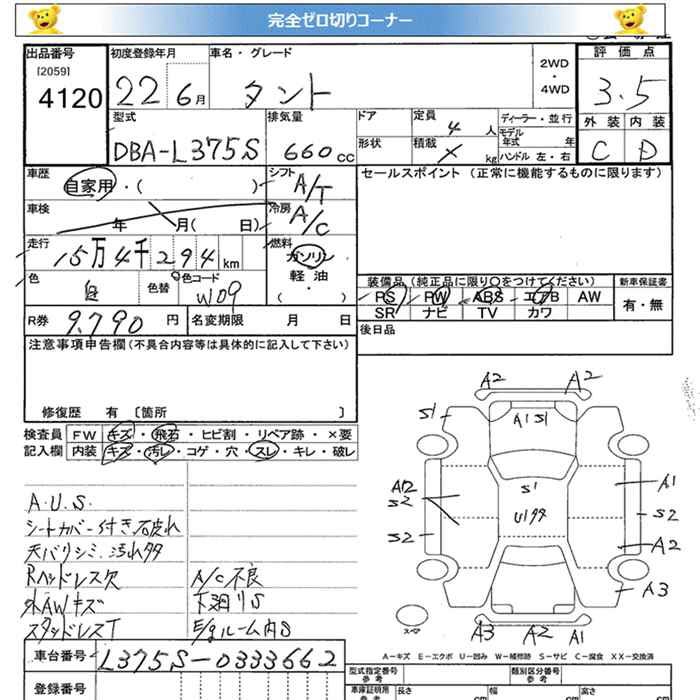 完全ゼロ切りコーナー
出品番号 初度登録年月 車名・グレード 2WD ・ 4WD 評価点
[2059]
4120 22 6月 タント 3.5
型式 排気量 ドア 定員 4 人 ディーラー・並行 外装 内装
DBA-L375S 660cc 形状 積載 × kg モデル年式 年 ハンドル 左・右 C D
車歴 自家用・( ) シフト A/T セールスポイント (正常に機能するものに限ります)
車検 年 月( 日) 冷房 A/C
走行 15万4千294km 燃料 ガソリン
軽油
( ・ )
色 白 色替 色コード W09 装備品(純正品に限り○をつけてください) 新車保証書
PS PW ABS エアB AW 有・無
SR ナビ TV カワ
R券 9,790円 名変期限 月 日 後日品
注意事項申告欄(不具合内容等は具体的に記入して下さい)
修復歴 有 〔箇所 〕
検査員 FW キズ・飛石・ヒビ割・リペア跡・×要
記入欄 内装 キズ・汚レ・コゲ・穴・スレ・キレ・破レ
A.U.S.
シートカバー付き破れ
天バリシミ、汚れ多
Rヘッドレス欠 A/C不良
外AWキズ 下廻りS
スタッドレスT E/gルーム内S
A2 A2
S1 A1 S1
A12 S2 S1 A1
U1多 S2
S2 A2
A3
スペア
A3 A2 A1
A－キズ E－エクボ U－凹み W－補修跡 S－サビ C－腐食 XX－交換済
車台番号 L375S-0333662
型式指定番号 参考 類別区分番号 参考
登録番号 車庫証明用 参考 長さ cm 幅 cm 高さ cm